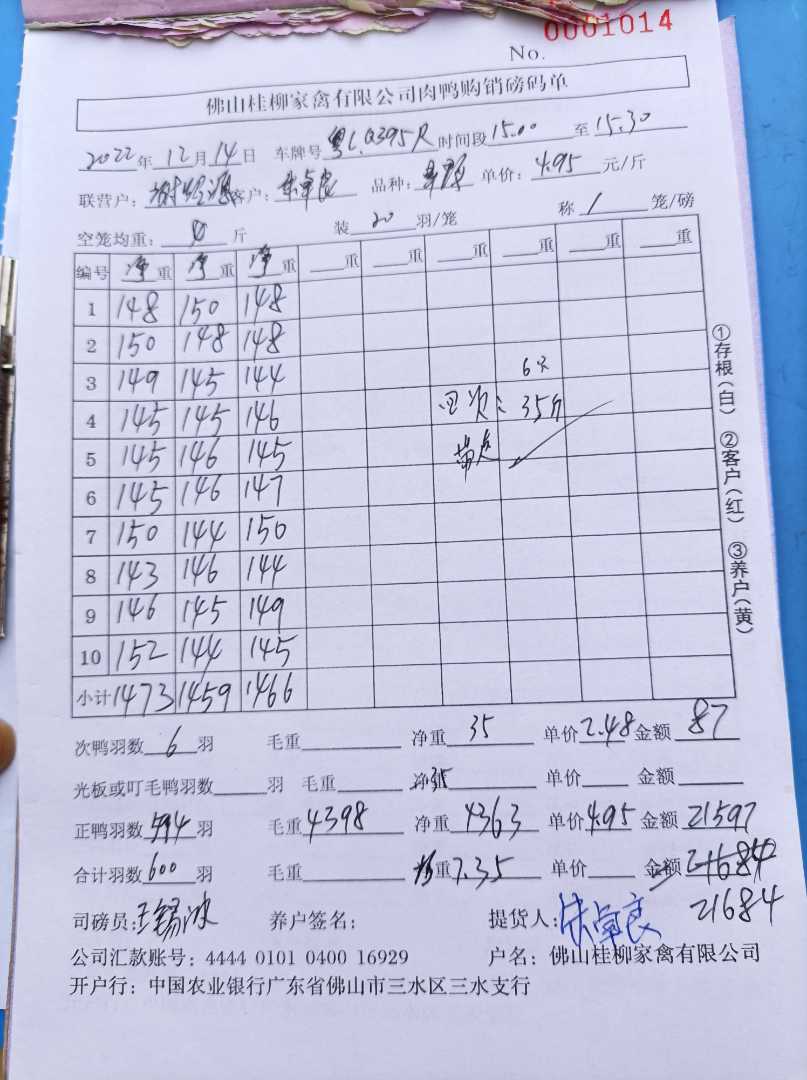 0001014
No.
佛山桂柳家禽有限公司肉鸭购销磅码单
2022年 12月 14日 车牌号 粤L.Q395R 时间段 15.00 至 15.30
联营户: 客户: 朱卓良 品种: 单价: 4.95 元/斤
空笼均重: 斤 装 20 羽/笼 称 1 笼/磅
编号 净重 净重 净重 重 重 重 重 重 重
1 148 150 148
2 150 148 148
3 149 145 144 6只
4 145 145 146 次: 35斤
5 145 146 145
6 145 146 147
7 150 144 150
8 143 146 144
9 146 145 149
10 152 144 145
小计 1473 1459 1466
①存根(白) ②客户(红) ③养户(黄)
次鸭羽数 6 羽 毛重 净重 35 单价 2.48 金额 87
光板或叮毛鸭羽数 羽 毛重 净重 单价 金额
正鸭羽数 594 羽 毛重 4398 净重 4363 单价 4.95 金额 21597
合计羽数 600 羽 毛重 均重 7.35 单价 金额 21684
21684
司磅员: 王锡冰 养户签名: 提货人: 朱卓良
公司汇款账号: 4444 0101 0400 16929 户名: 佛山桂柳家禽有限公司
开户行: 中国农业银行广东省佛山市三水区三水支行